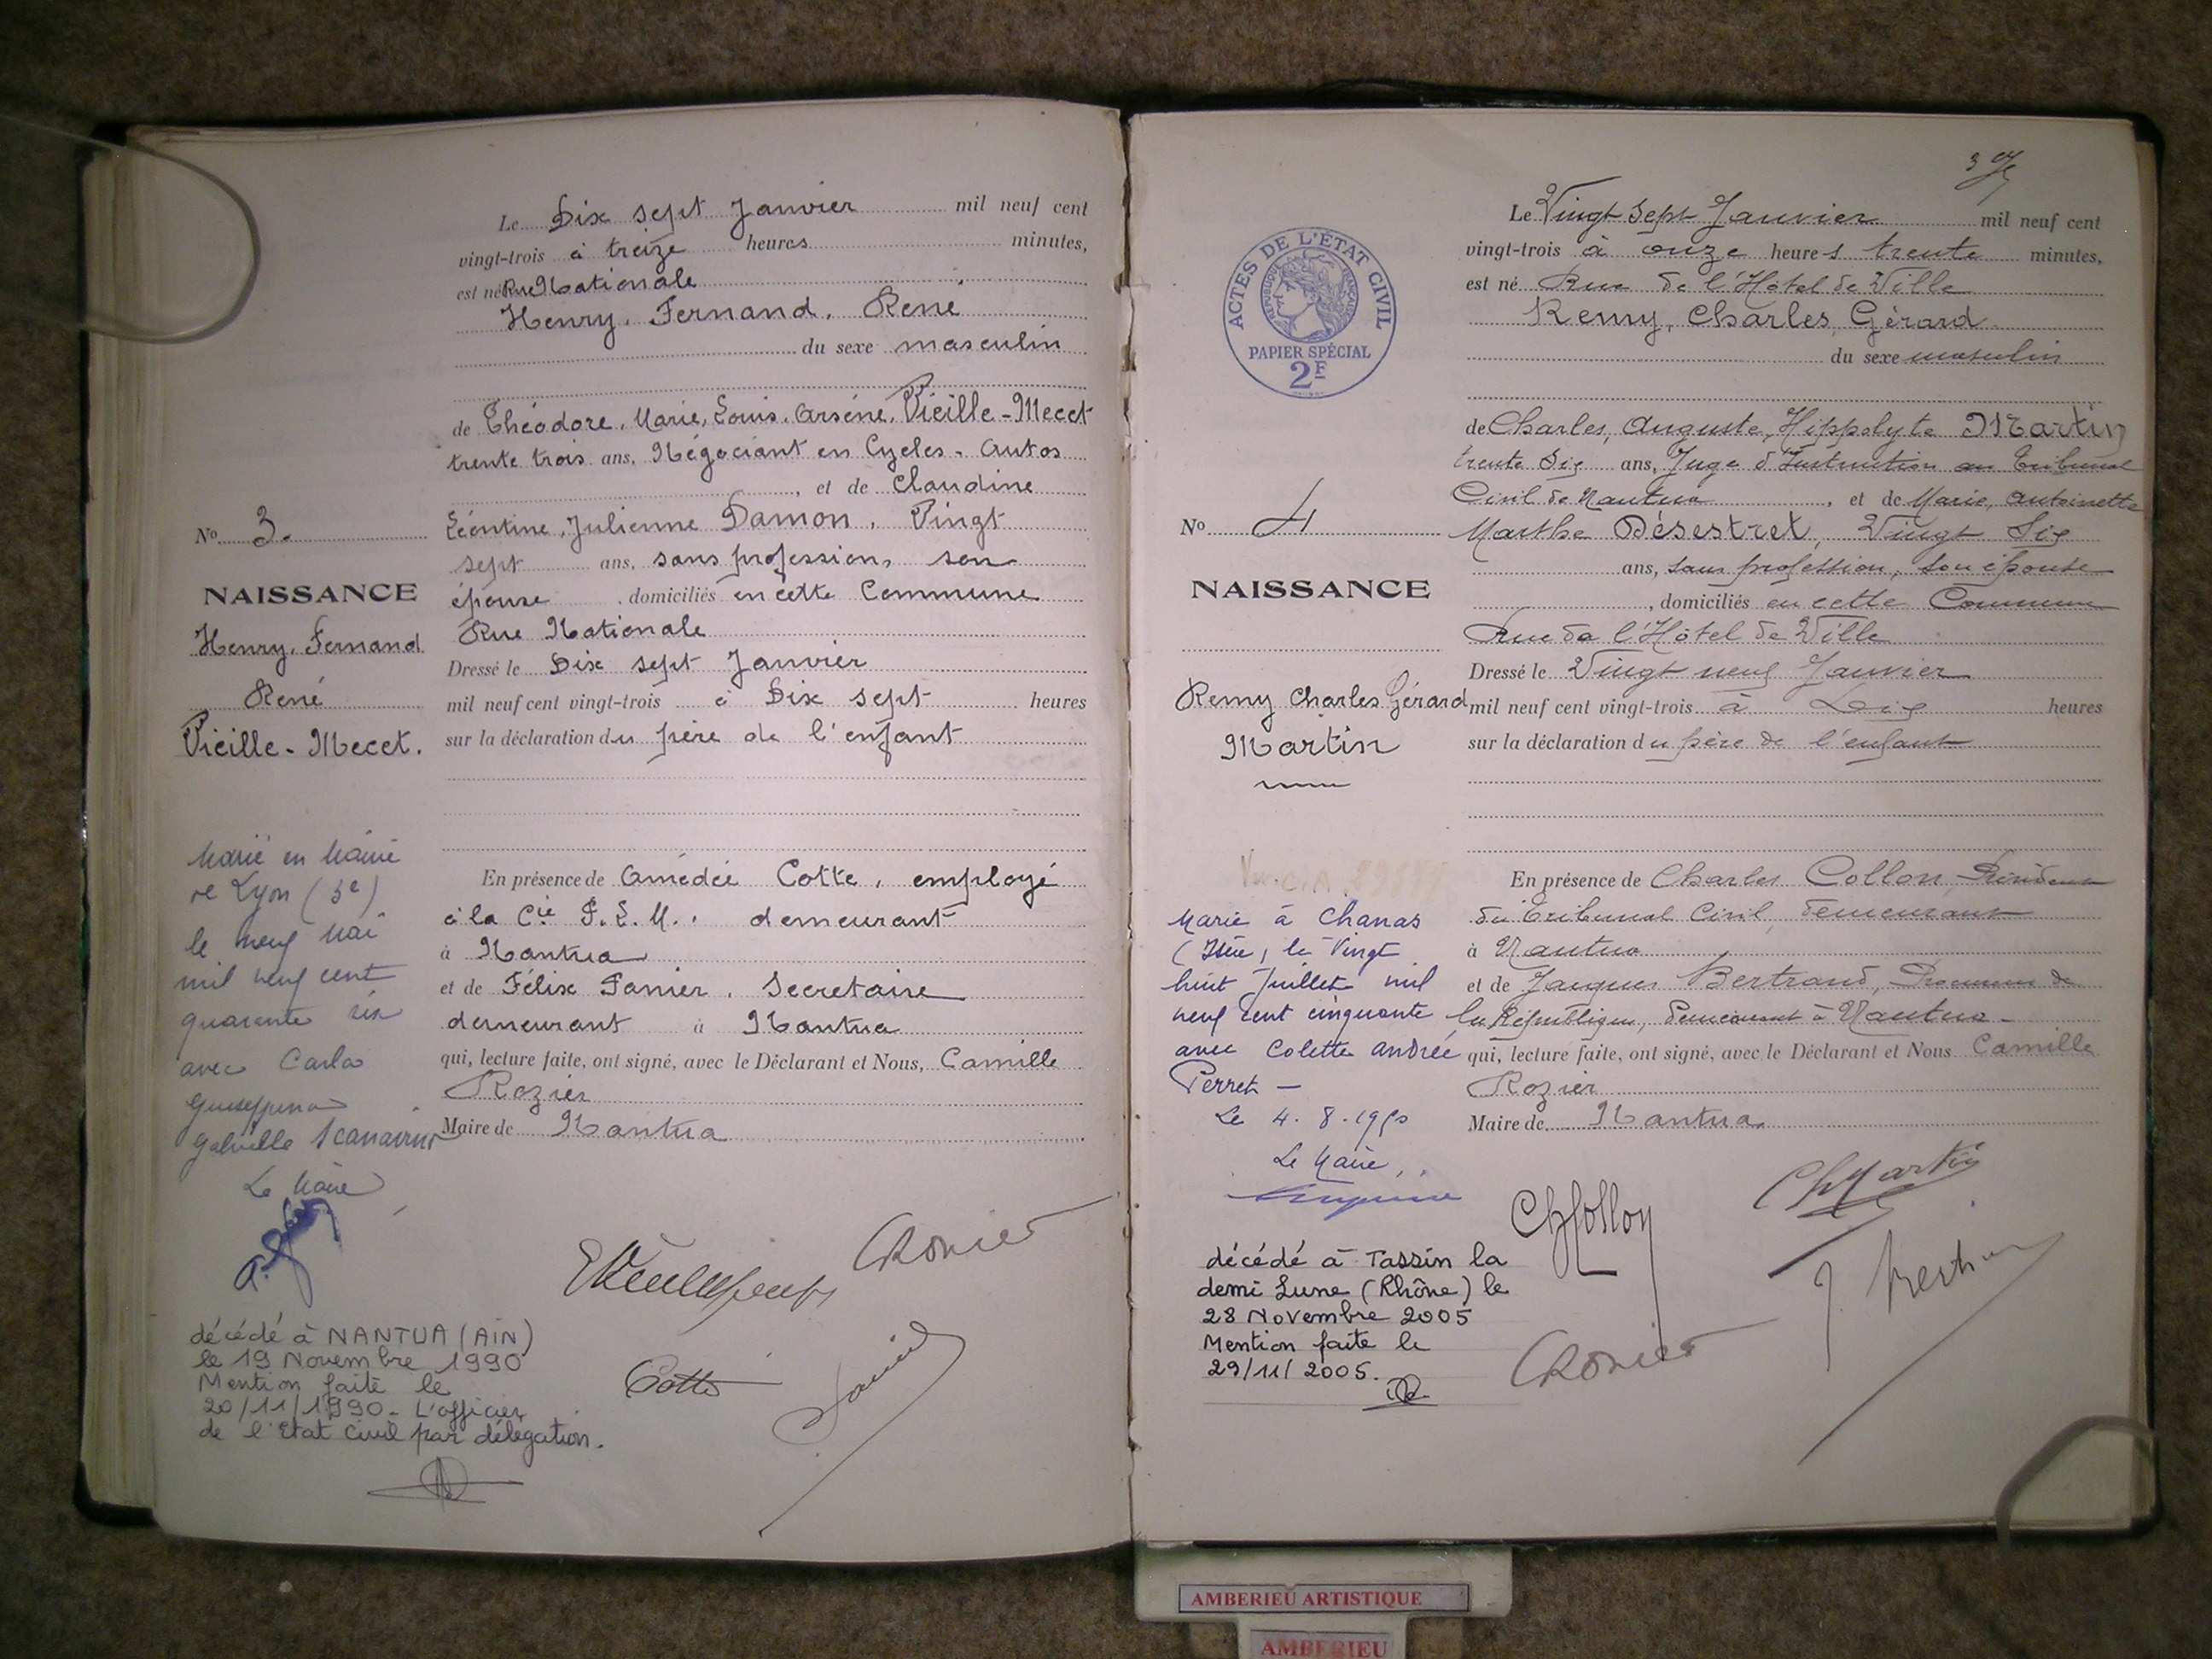 Le Dix sept Janvier mil neuf cent
vingt-trois à treize heures minutes,
est né Rue Nationale
Henry, Fernand, René
du sexe masculin
de Théodore, Marie, Louis, Arsène, Vieille-Mecet
trente trois ans, Négociant en Cycles - Autos
, et de Claudine
Léontine, Julienne Damon, Vingt
sept ans, sans profession, son
épouse , domiciliés en cette Commune
Rue Nationale
Dressé le Dix sept Janvier
mil neuf cent vingt-trois à Dix sept heures
sur la déclaration du père de l'enfant
No 3.
NAISSANCE
Henry, Fernand
René
Vieille-Mecet.
En présence de Amédée Cotte, employé
à la Cie F.E.M., demeurant
à Nantua
et de Félix Fanier, Secretaire
demeurant à Nantua
qui, lecture faite, ont signé, avec le Déclarant et Nous, Camille
Rozier
Maire de Nantua
Marié en Mairie
de Lyon (3e)
le neuf Mai
mil neuf cent
quarante six
avec Carla
Giuseppena
Gabriella
Le Maire
Cotte
décédé à NANTUA (AIN)
le 19 Novembre 1990
Mention faite le
20/11/1990 - L'officier
de l'Etat Civil par délégation.
ACTES DE L'ÉTAT CIVIL
RÉPUBLIQUE FRANÇAISE
PAPIER SPÉCIAL
2F
Le Vingt sept Janvier mil neuf cent
vingt-trois à onze heures trente minutes,
est né Rue de l'Hôtel de Ville
Remy, Charles, Gérard
du sexe masculin
de Charles, Auguste, Hippolyte Martin
trente Dix ans, Juge d'Instruction au Tribunal
Civil de Nantua , et de Marie, Antoinette
Marthe Désestret, Vingt Six
ans, sans profession, son épouse
, domiciliés en cette Commune
Rue de l'Hôtel de Ville
Dressé le Vingt neuf Janvier
mil neuf cent vingt-trois à Dix heures
sur la déclaration du père de l'enfant
No 4
NAISSANCE
Remy Charles Gérard
Martin
En présence de Charles Collon, Président
du Tribunal Civil, demeurant
à Nantua
et de Jacques Bertrand, Procureur de
la République, demeurant à Nantua
qui, lecture faite, ont signé, avec le Déclarant et Nous Camille
Rozier
Maire de Nantua
Marié à Chanas
(Isère, le Vingt
huit Juillet mil
neuf cent cinquante
avec Colette Andrée
Perret —
Le 4.8.1950
Le Maire,
Ch Martin
décédé à Tassin la
demi Lune (Rhône) le
28 Novembre 2005
Mention faite le
29/11/2005.
AMBERIEU ARTISTIQUE
AMBERIEU